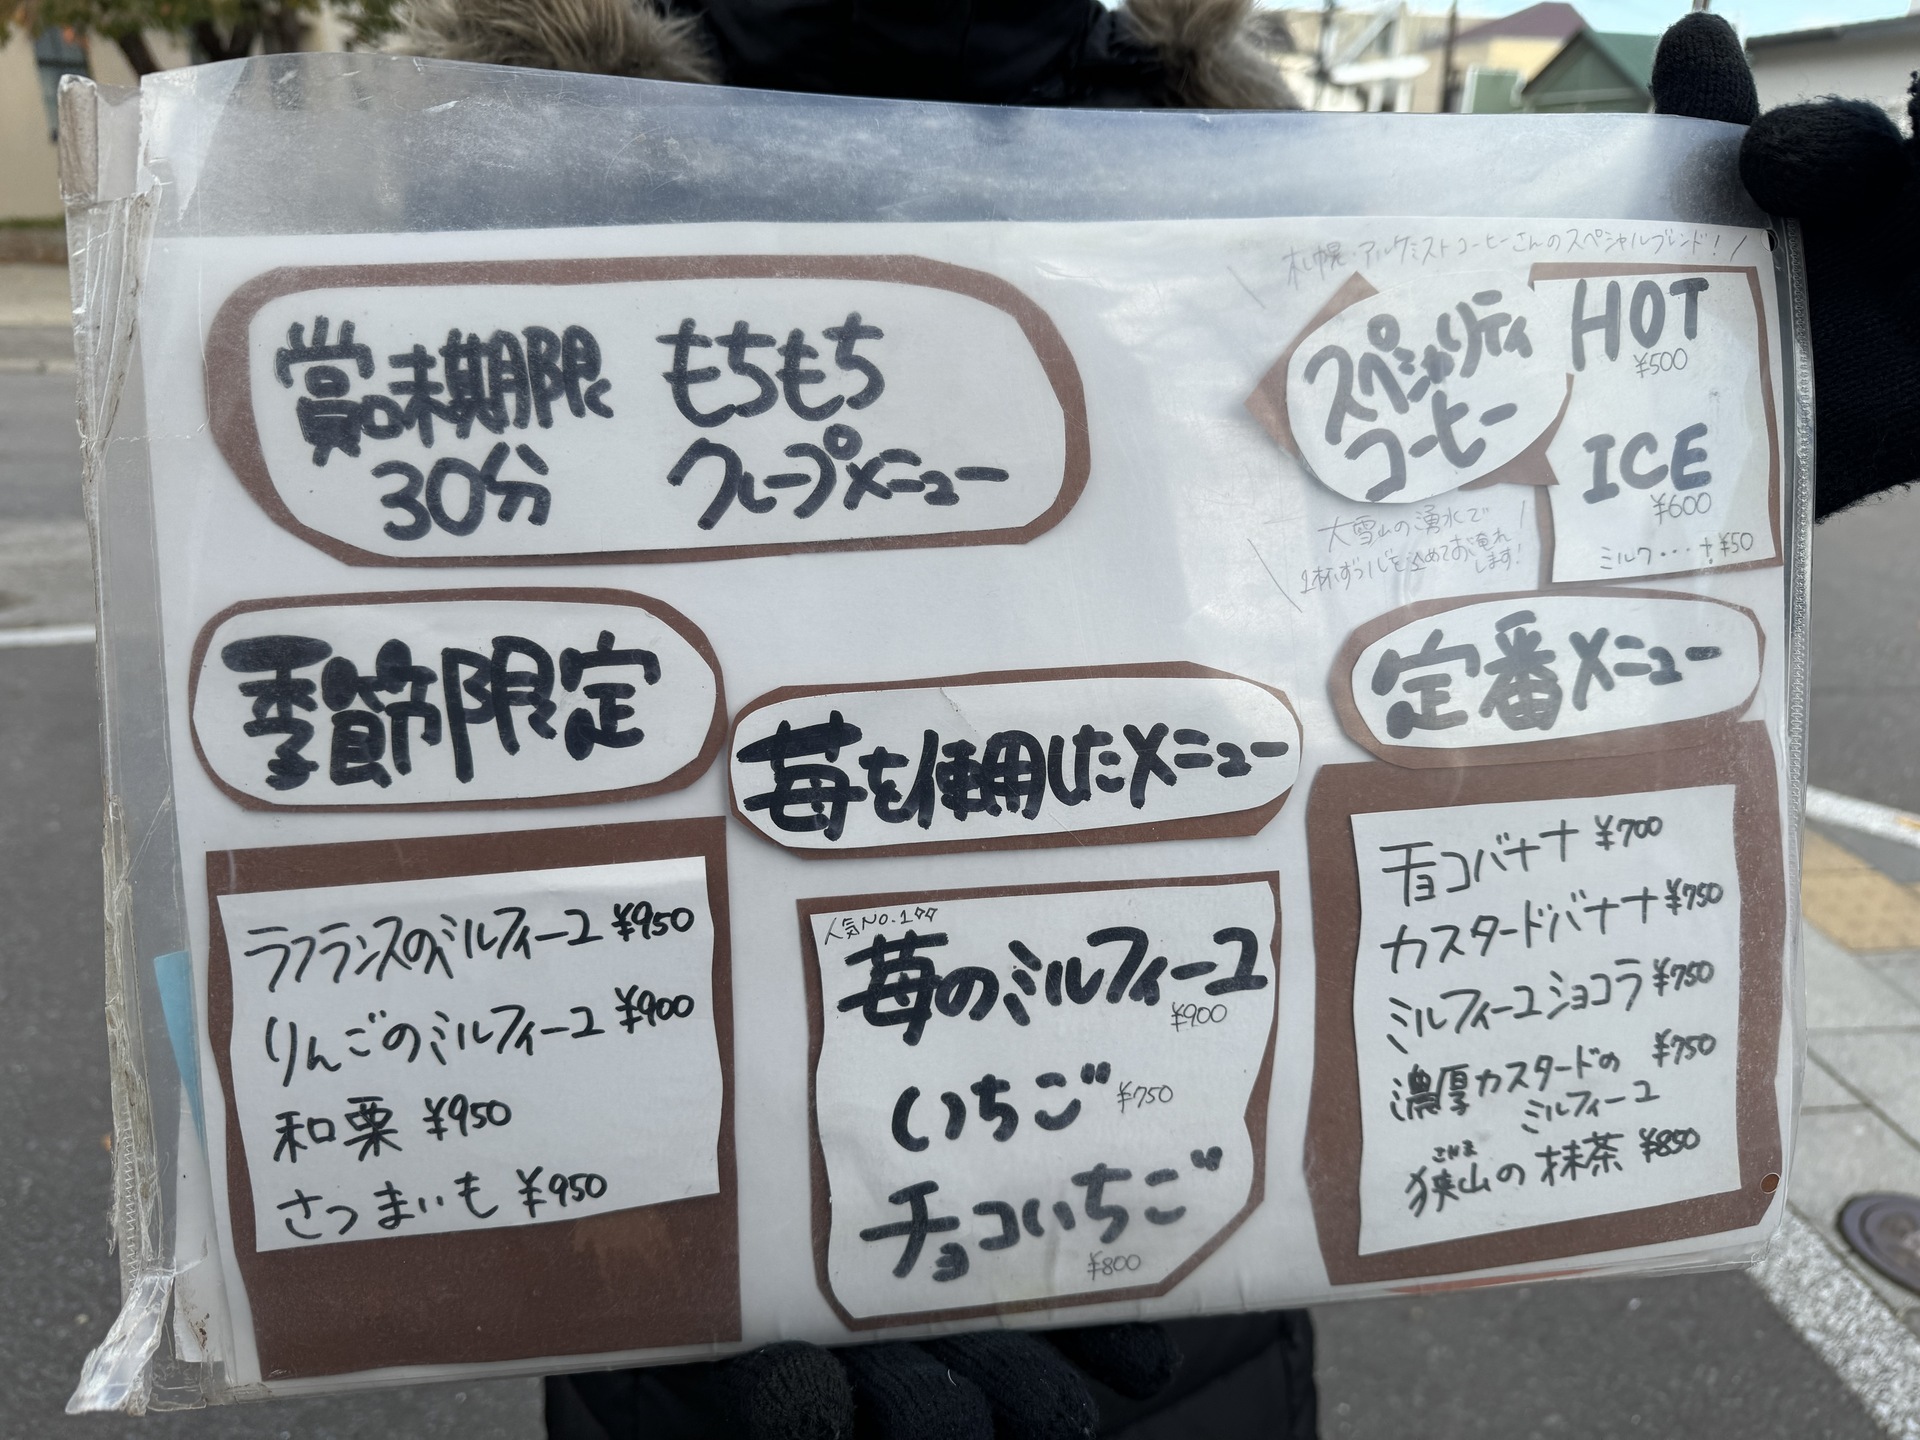 賞味期限 もちもち
30分 クレープメニュー
札幌・アルケミストコーヒーさんのスペシャルブレンド!
スペシャリティ
コーヒー
HOT
¥500
ICE
¥600
ミルク・・・+¥50
大雪山の湧水で
1杯ずつ心を込めてお淹れ
します!
季節限定
ラフランスのミルフィーユ ¥950
りんごのミルフィーユ ¥900
和栗 ¥950
さつまいも ¥950
苺を使用したメニュー
人気No.1
苺のミルフィーユ
¥900
いちご ¥750
チョコいちご
¥800
定番メニュー
チョコバナナ ¥700
カスタードバナナ ¥750
ミルフィーユショコラ ¥750
濃厚カスタードの ¥750
ミルフィーユ
さやま
狭山の抹茶 ¥850